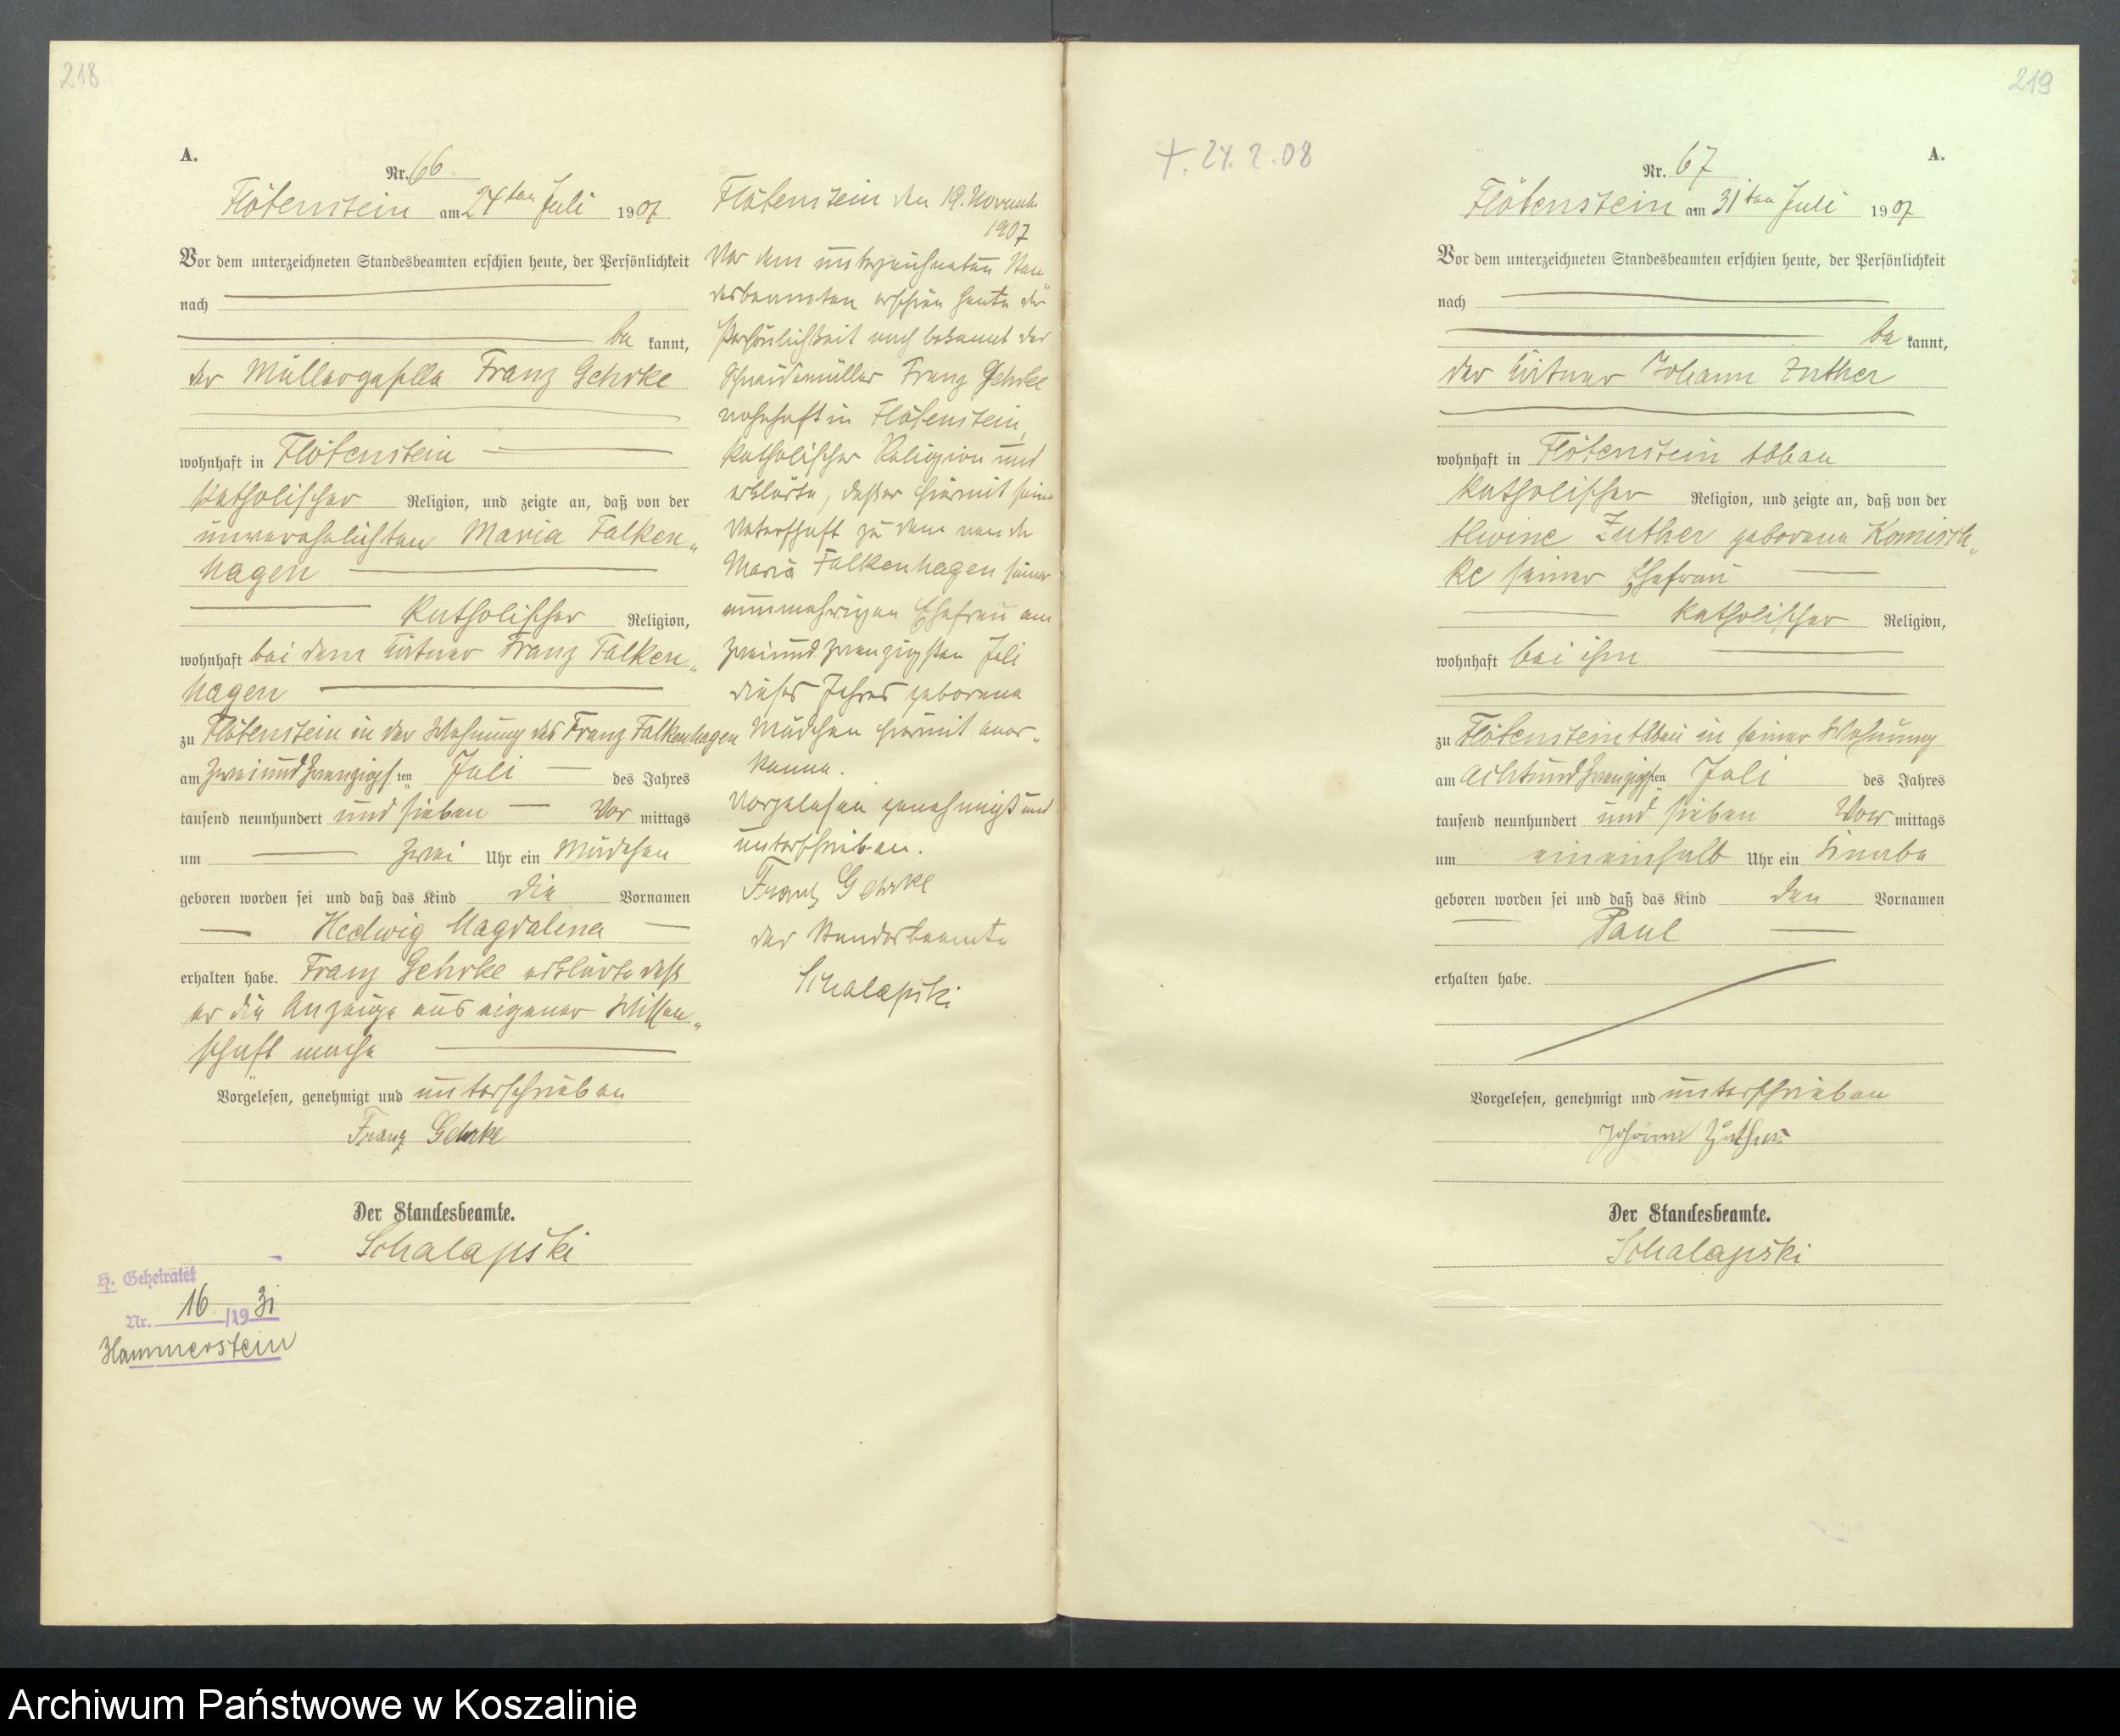 218
A.
Nr. 66
Flötenstein am 24ten Juli 1907
Vor dem unterzeichneten Standesbeamten erschien heute, der Persönlichkeit
nach
be kannt,
der Müllergeselle Franz Gehrke
wohnhaft in Flötenstein
katholischer Religion, und zeigte an, daß von der
unverehelichten Maria Falken„
hagen
katholischer Religion,
wohnhaft bei dem Kätner Franz Falken„
hagen
zu Flötenstein in der Wohnung des Franz Falkenhagen
am zweiundzwanzigsten Juli des Jahres
tausend neunhundert und sieben Vor mittags
um zwei Uhr ein Mädchen
geboren worden sei und daß das Kind die Vornamen
Hedwig Magdalena
erhalten habe. Franz Gehrke erklärte daß
er die Anzeige aus eigener Wissen„
schaft mache
Vorgelesen, genehmigt und unterschrieben
Franz Gehrke
Der Standesbeamte.
Schalapski
H. Geheiratet
Nr. 16 /1931
Hammerstein
Flötenstein den 19. Novemb.
1907
Vor dem unterzeichneten Stan
desbeamten erschien heute der
Persönlichkeit nach bekannt der
Schneidemüller Franz Gehrke
wohnhaft in Flötenstein,
katholischer Religion und
erklärte, daß er hiermit seine
Vaterschaft zu dem von der
Maria Falkenhagen seiner
nunmehrigen Ehefrau am
zweiundzwanzigsten Juli
dieses Jahres geborene
Mädchen hiermit aner„
kenne.
Vorgelesen genehmigt und
unterschrieben.
Franz Gehrke
der Standesbeamte
Schalapski
219
+. 24. 2. 08
A.
Nr. 67
Flötenstein am 31ten Juli 1907
Vor dem unterzeichneten Standesbeamten erschien heute, der Persönlichkeit
nach
be kannt,
der Kätner Johann Zuther
wohnhaft in Flötenstein Abbau
katholischer Religion, und zeigte an, daß von der
Alwine Zuther geborene Komisch„
ke seiner Ehefrau
katholischer Religion,
wohnhaft bei ihm
zu Flötenstein Abbau in seiner Wohnung
am achtundzwanzigsten Juli des Jahres
tausend neunhundert und sieben Vor mittags
um eineinhalb Uhr ein Knabe
geboren worden sei und daß das Kind den Vornamen
Paul
erhalten habe.
Vorgelesen, genehmigt und unterschrieben
Johann Zuther
Der Standesbeamte.
Schalapski
Archiwum Państwowe w Koszalinie